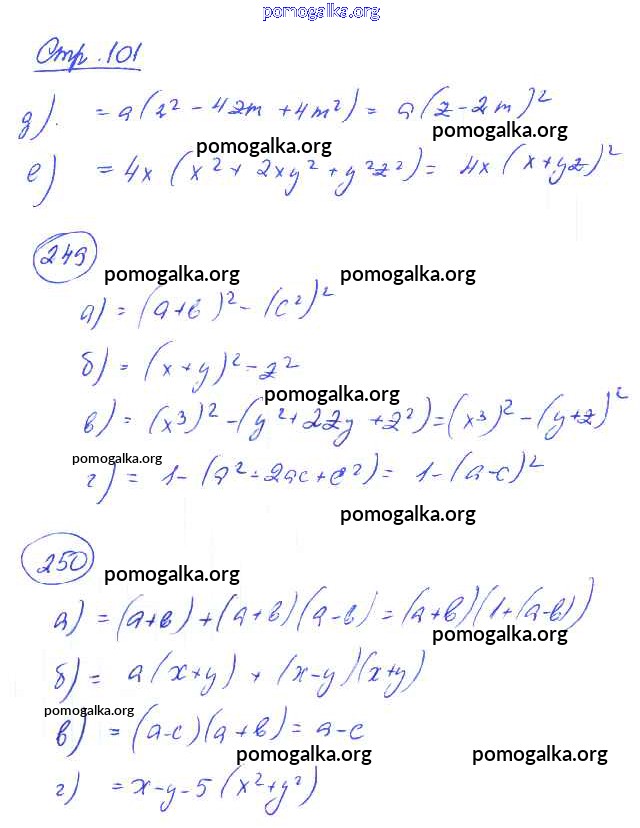 pomogalka.org
Стр. 101
д). = a(z² - 4zm + 4m²) = a(z - 2m)²
pomogalka.org
pomogalka.org
е) = 4x (x² + 2xy² + y²z²) = 4x (x + yz)²
249
pomogalka.org pomogalka.org
а) = (a+b)² - (c²)²
б) = (x+y)² - z²
pomogalka.org
в) = (x³)² - (y² + 2zy + z²) = (x³)² - (y+z)²
pomogalka.org
г) = 1 - (a² - 2ac + c²) = 1 - (a-c)²
pomogalka.org
250
pomogalka.org
а) = (a+b) + (a+b)(a-b) = (a+b)(1+(a-b))
pomogalka.org
б) = a(x+y) + (x-y)(x+y)
pomogalka.org
в) = (a-c)(a+b) = a-c
pomogalka.org pomogalka.org
г) = x-y-5(x²+y²)